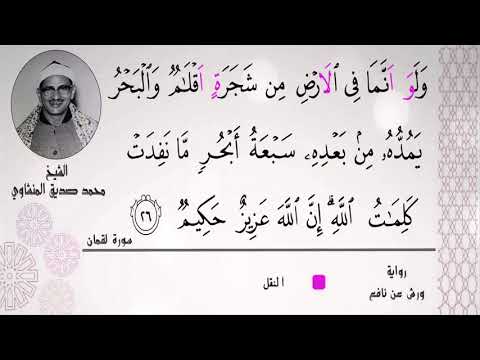 وَلَوَ اَنَّمَا فِي اِ۬لَارْضِ مِن شَجَرَةٍ اَقْلَٰمٞ وَالْبَحْرُ
يَمُدُّهُۥ مِنۢ بَعْدِهِۦ سَبْعَةُ أَبْحُرٖ مَّا نَفِدَتْ
كَلِمَٰتُ اُ۬للَّهِۖ إِنَّ اَ۬للَّهَ عَزِيزٌ حَكِيمٞ ٢٦
الشيخ
محمد صديق المنشاوي
سورة لقمان
رواية
ورش عن نافع
النقل